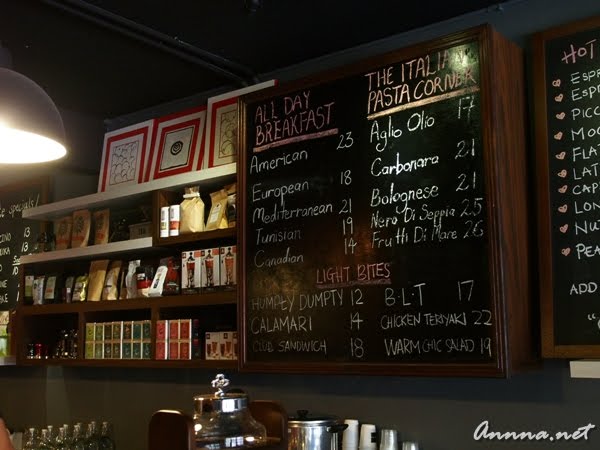 ALL DAY
BREAKFAST
American 23
European 18
Mediterranean 21
Tunisian 19
Canadian 14
THE ITALIAN
PASTA CORNER
Aglio Olio 17
Carbonara 21
Bolognese 21
Nero Di Seppia 25
Frutti Di Mare 26
LIGHT BITES
HUMPTY DUMPTY 12
CALAMARI 14
CLUB SANDWICH 18
B.L.T 17
CHICKEN TERIYAKI 22
WARM CHIC SALAD 19
HOT
ADD
specials
13
Annna.net